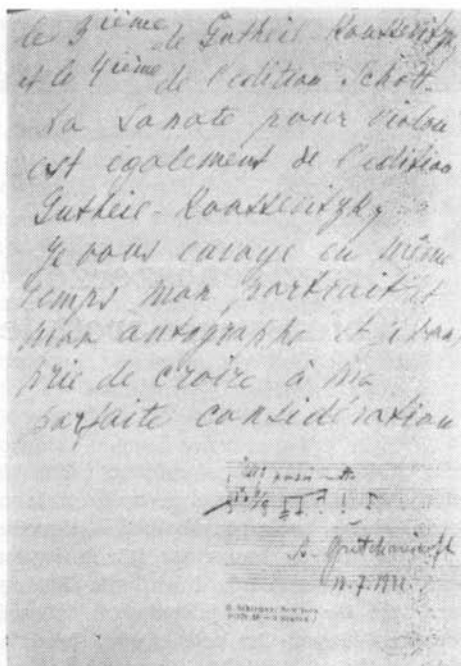 le 3ième de Gutheil-Koussevitzky
et le 4ième de l'edition Schott.
La Sonate pour violon
est également de l'edition
Gutheil-Koussevitzky.
Je vous envoye en même
temps mon portrait et
mon autographe et vous
prie de croire à ma
parfaite considération
A. Gretchaninoff
G. Schirmer, New York